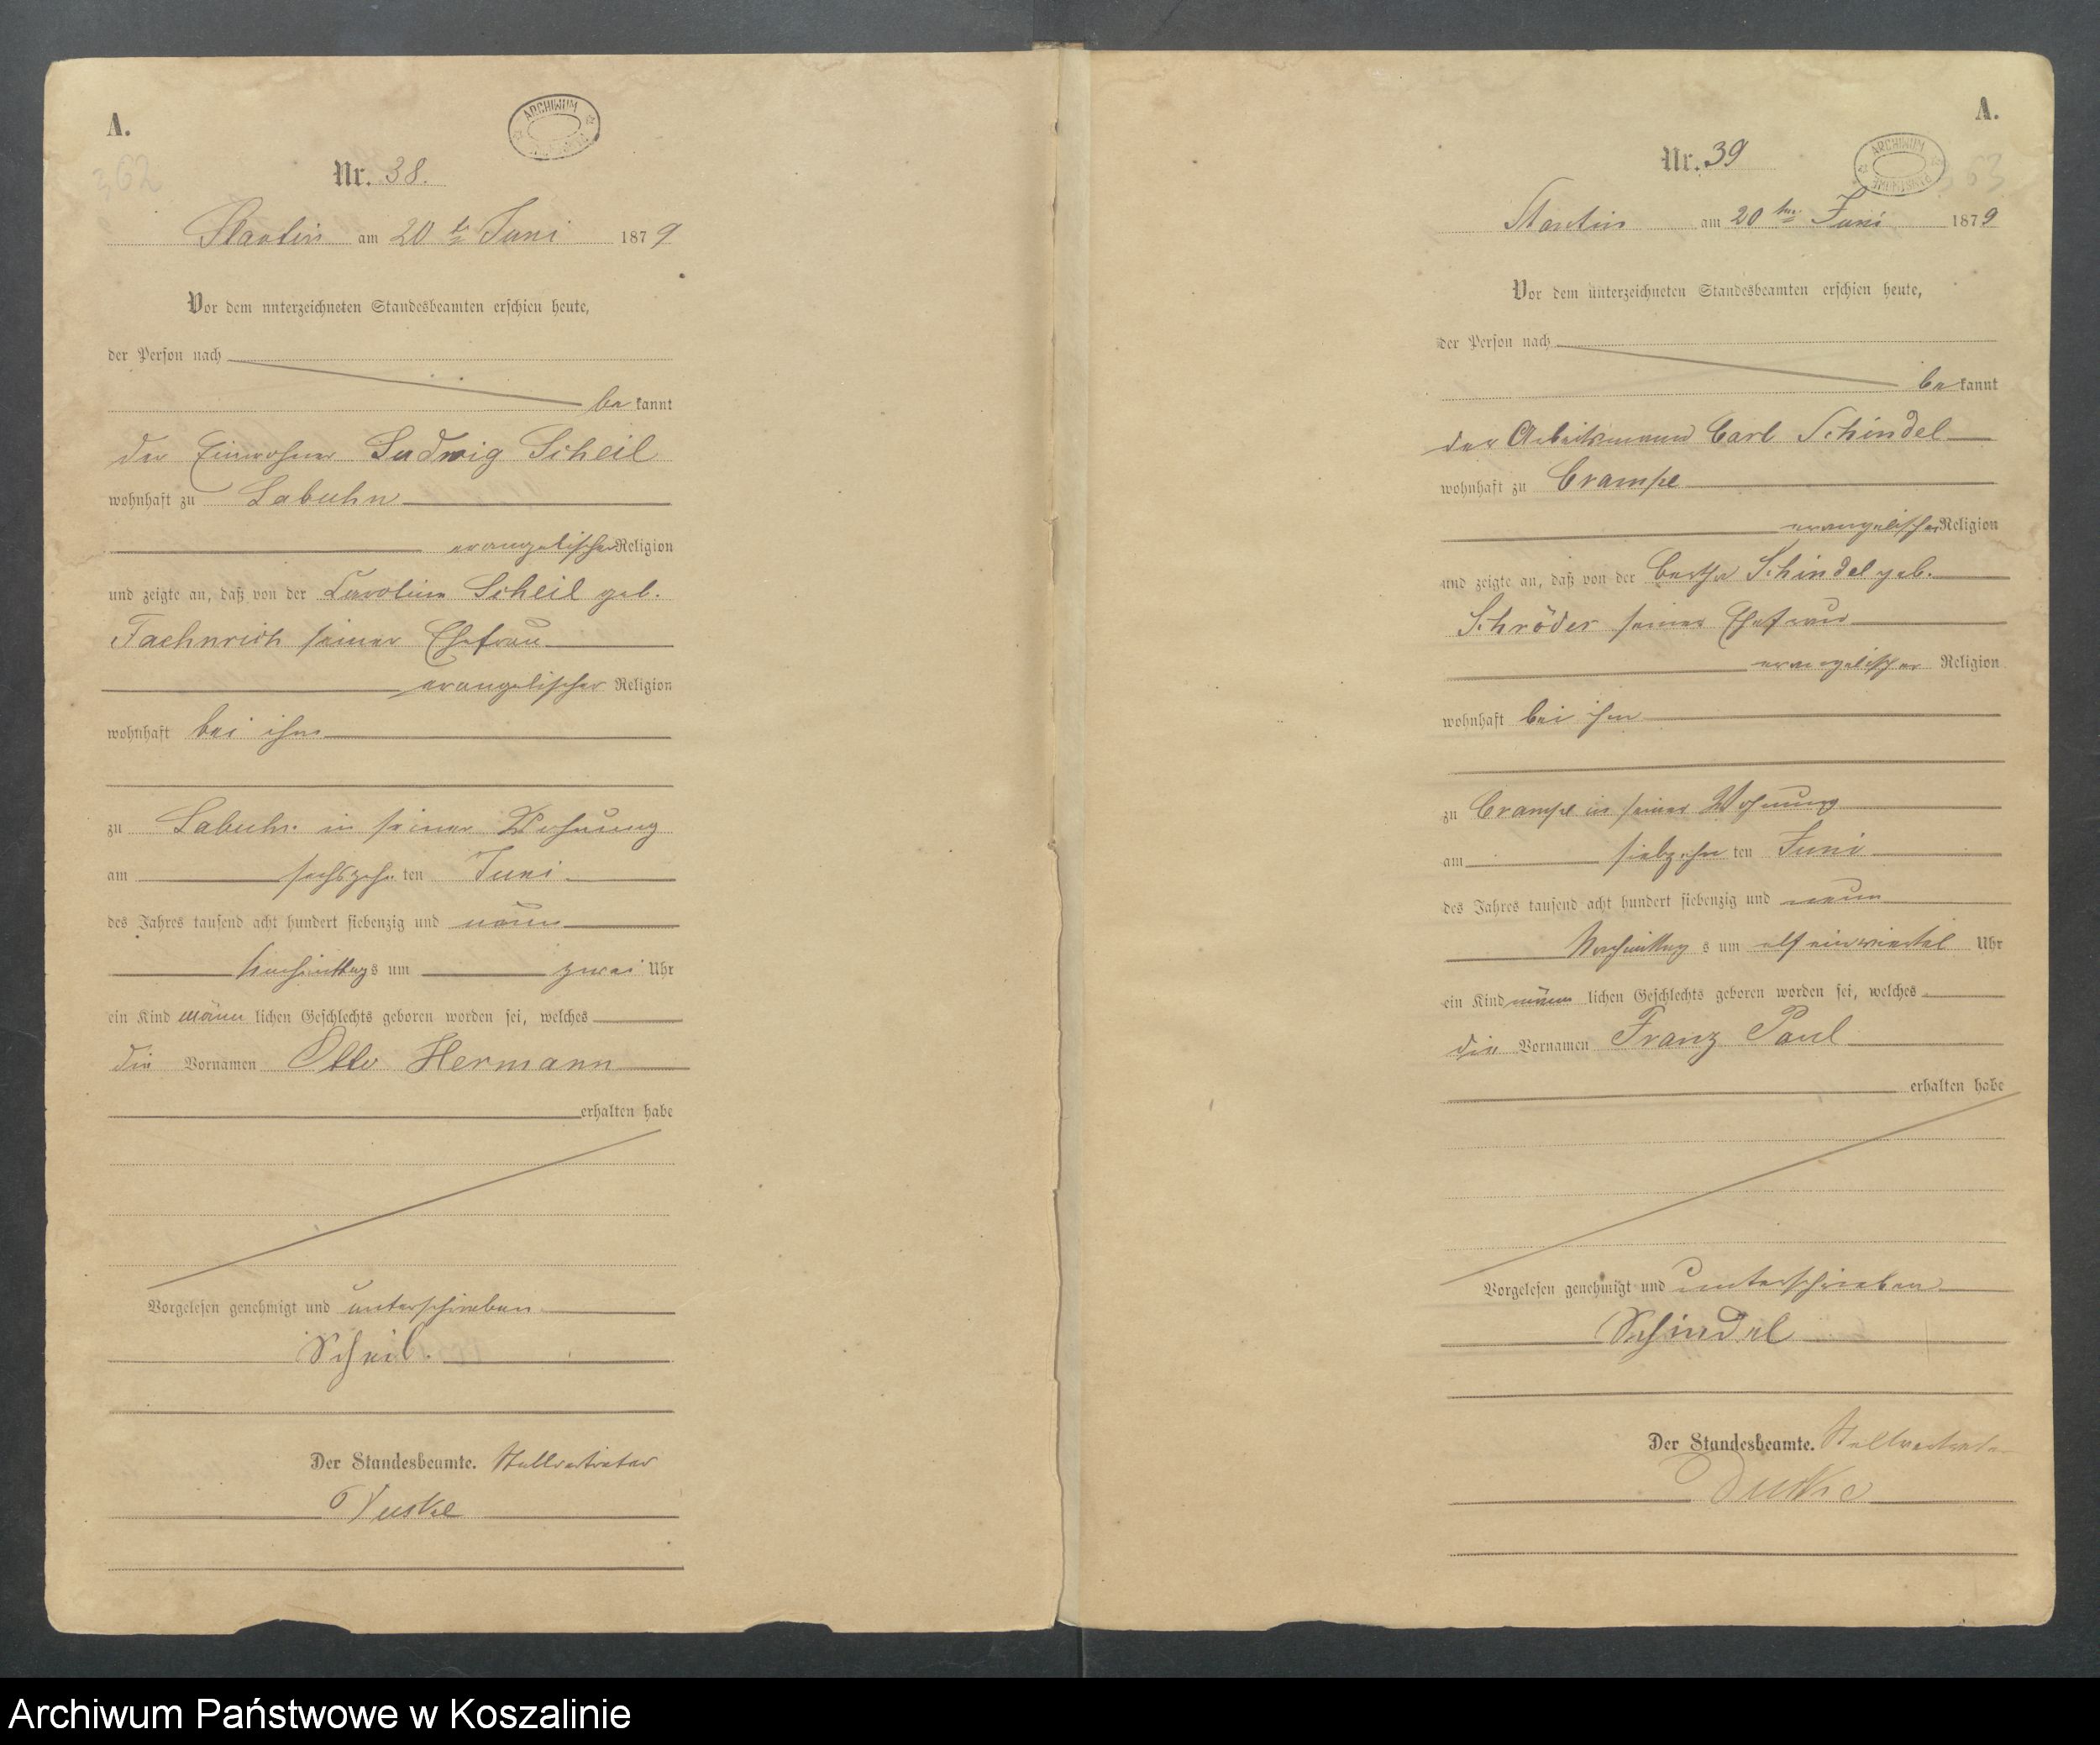 A.
ARCHIWUM
362
Nr. 38.
am 20 t. Juni 1879
Vor dem unterzeichneten Standesbeamten erschien heute,
der Person nach
be kannt
der Einwohner Ludwig Scheil
wohnhaft zu Labuhn
evangelischer Religion
und zeigte an, daß von der Caroline Scheil geb.
Faehnrich seiner Ehefrau
evangelischer Religion
wohnhaft bei ihm
zu Labuhn in seiner Wohnung
am sechszehnten Juni
des Jahres tausend acht hundert siebenzig und neun
Nachmittags um zwei Uhr
ein Kind männlichen Geschlechts geboren worden sei, welches
die Vornamen Otto Hermann
erhalten habe
Vorgelesen genehmigt und unterschrieben
Scheil.
Der Standesbeamte. Stellvertreter
A.
ARCHIWUM PAŃSTWOWE
363
Nr. 39
am 20 ten Juni 1879
Vor dem unterzeichneten Standesbeamten erschien heute,
der Person nach
be kannt
der Arbeitsmann Carl Schindel
wohnhaft zu Crampe
evangelischer Religion
und zeigte an, daß von der Bertha Schindel geb.
Schröder seiner Ehefrau
evangelischer Religion
wohnhaft bei ihm
zu Crampe in seiner Wohnung
am siebzehnten Juni
des Jahres tausend acht hundert siebenzig und neun
s um elf einviertel Uhr
ein Kind männlichen Geschlechts geboren worden sei, welches
die Vornamen Franz Paul
erhalten habe
Vorgelesen genehmigt und unterschrieben
Schindel
Der Standesbeamte. Stellvertreter
Archiwum Państwowe w Koszalinie